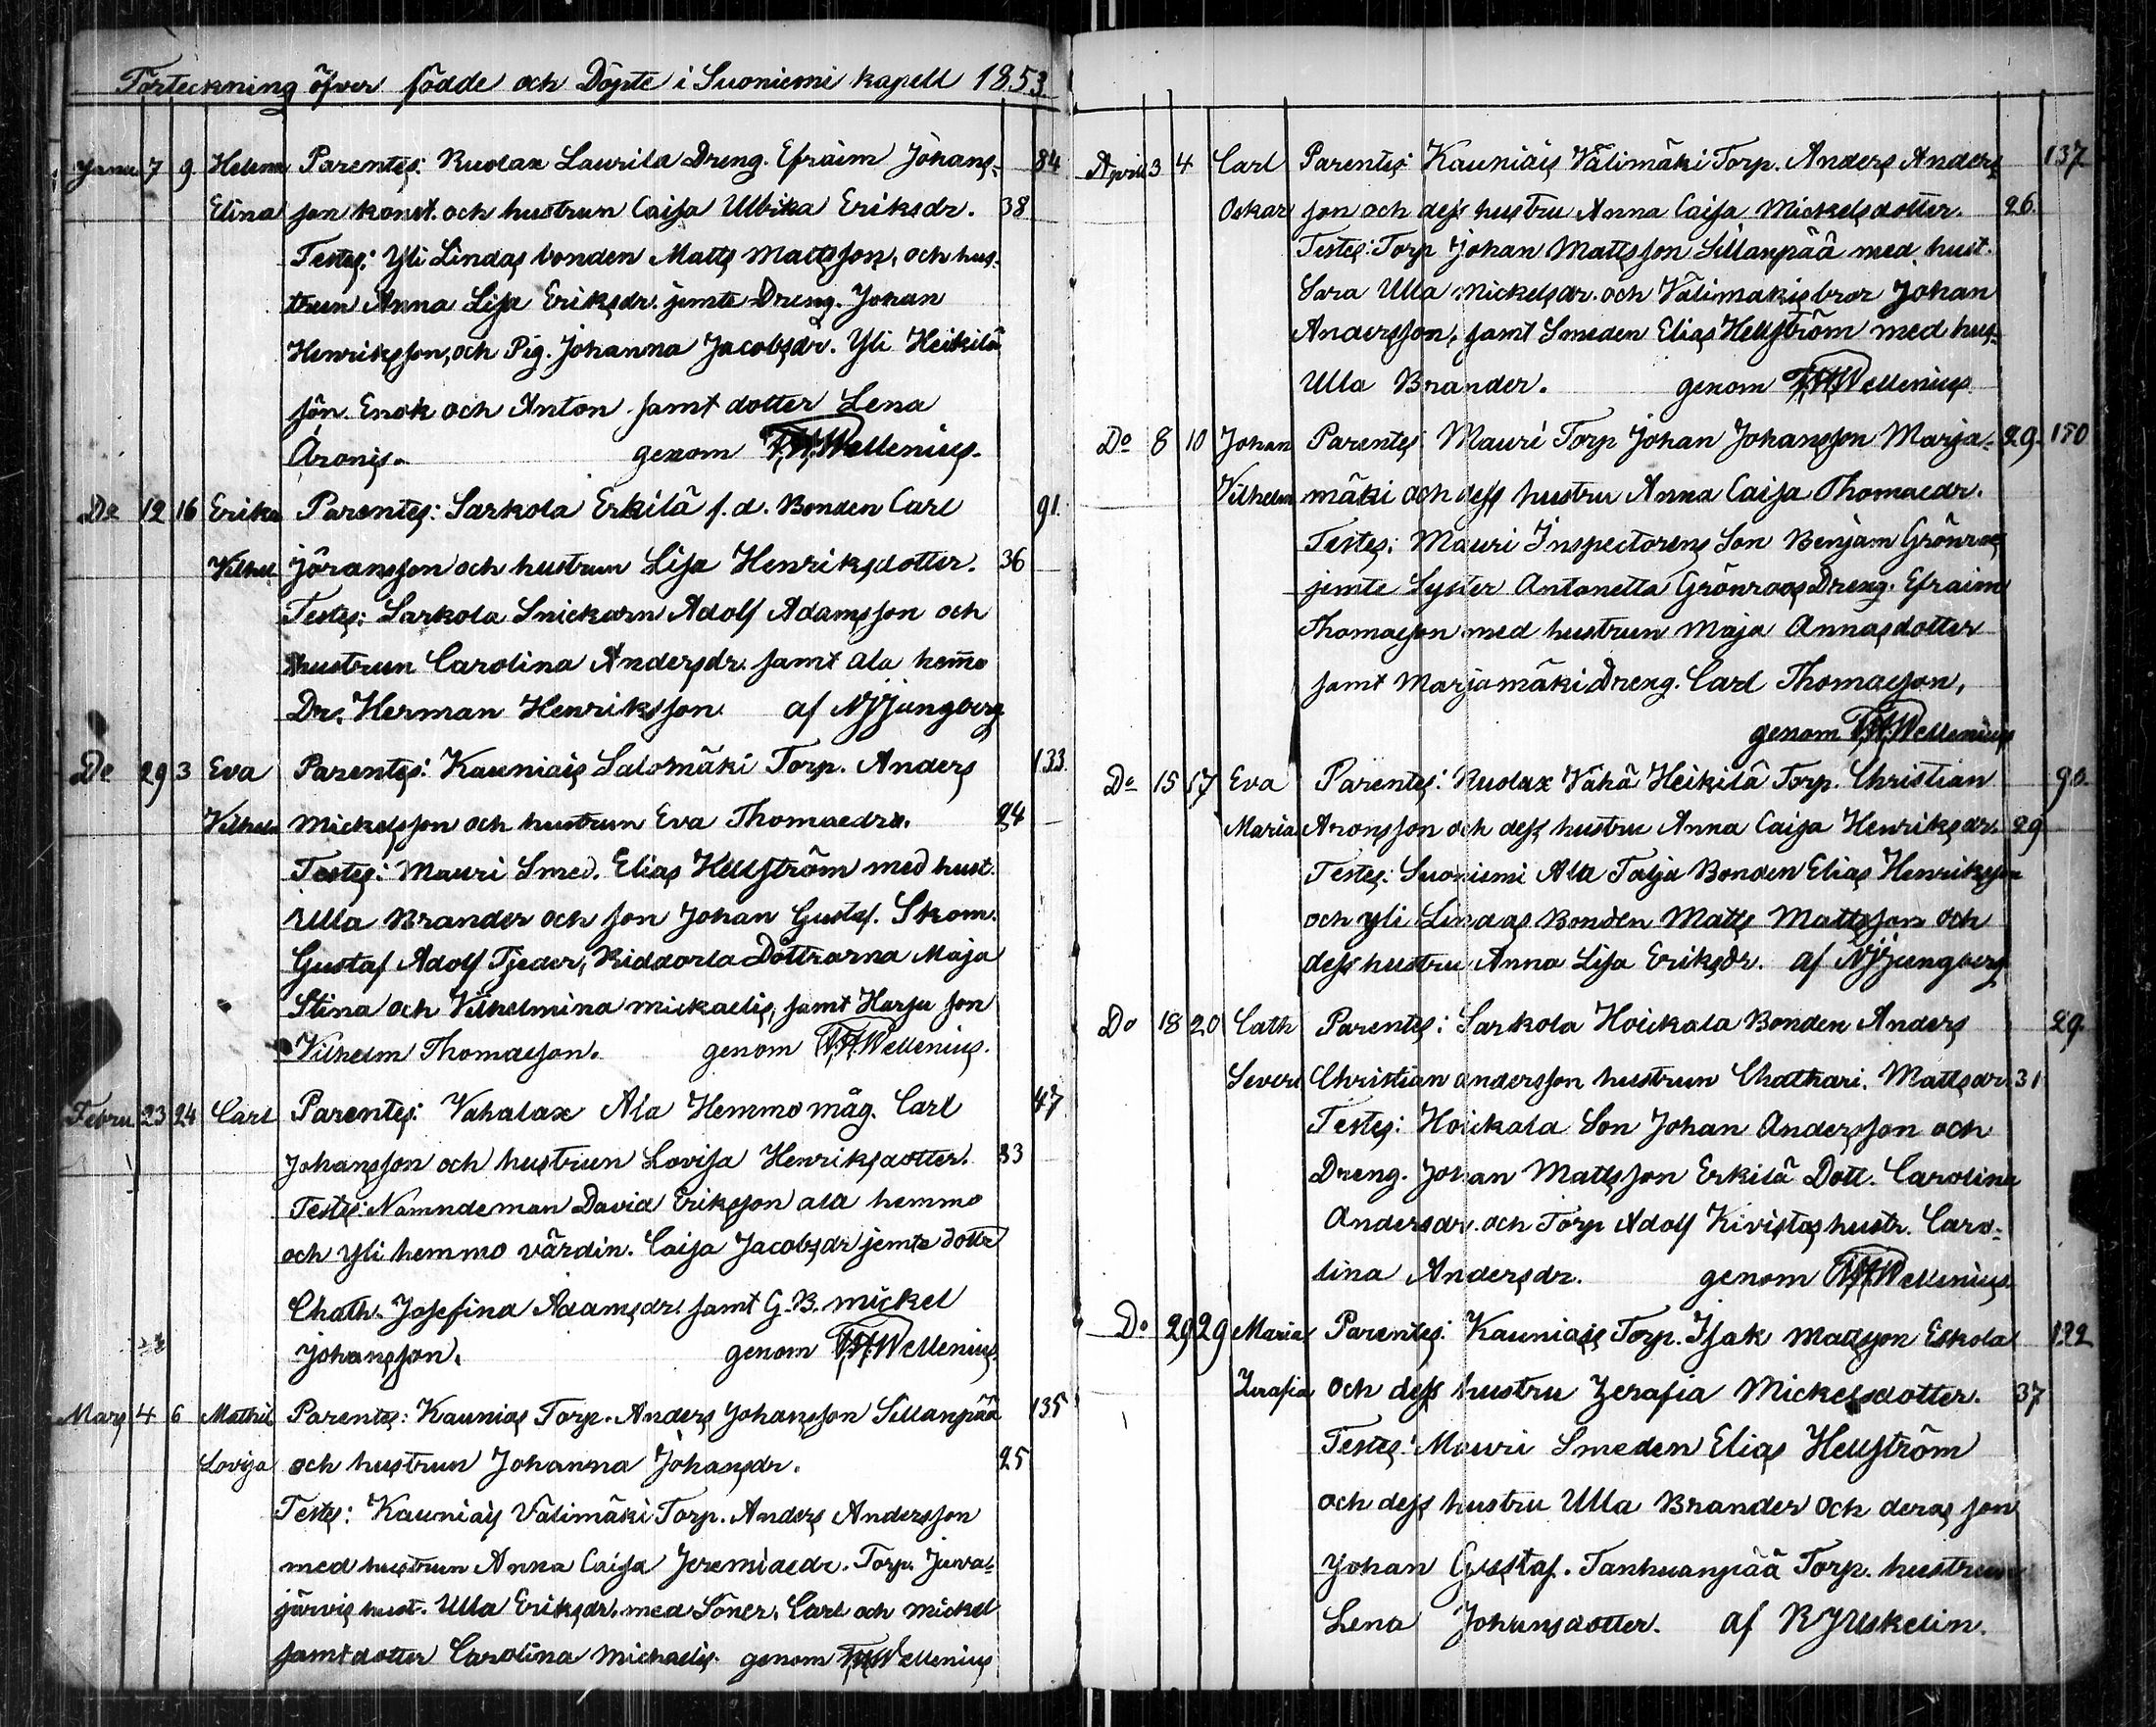 Förteckning öfver födde och Döpte i Suoniemi kapell 1853.
Janu 7 9 Helena Parentes: Ruolax Laurila Dreng. Efraim Johans- 84
Elina son konst. och hustrun Caisa Ullrika Eriksdr. 38
Testes: Yli Lindas bonden Matts Mattsson, och hus-
trun Anna Lisa Eriksdr. jemte Dreng. Johan
Henriksson, och Pig. Johanna Jacobsdr. Yli Heikilä
sön. Enok och Anton samt dotter Lena
Aronis. genom Wellenius.
Do 12 16 Erika Parentes: Sarkola Erkilä f.d. Bonden Carl 91.
Vilhel Jöransson och hustrun Lisa Henriksdotter. 36
Testes: Sarkola Snickarn Adolf Adamsson och
hustrun Carolina Andersdr. samt Ala hem̄o
Dr. Herman Henriksson af NJjungberg
Do 29 3 Eva Parentes: Kauniais Salomäki Torp. Anders 133.
Vilhelm Mickelsson och hustrun Eva Thomaedr. 24
Testes: Mauri Smed. Elias Hellström med hust.
Ulla Brander och son Johan Gustaf. Skom.
Gustaf Adolf Tjeder, Riddarla Döttrarna Maja
Stina och Vilhelmina Mickaelis, samt Harju son
Vilhelm Thomasson. genom Wellenius.
Febru 23 24 Carl Parentes: Vahalax Ala Hemmo måg. Carl 47
Johansson och hustrun Lovisa Henriksdotter. 33
Testes: Nämndeman David Eriksson ala hemmo
och Yli hemmo värdin. Caisa Jacobsdr jemte dottr
Chath. Josefina Adamsdr. samt G. B. Mickel
Johansson. genom Wellenius.
Mars 4 6 Mathil Parentes: Kaunias Torp. Anders Johansson Sillanpää 135
Lovisa och hustrun Johanna Johansdr. 25
Testes: Kauniais Välimäki Torp. Anders Andersson
med hustrun Anna Caisa Jeremiaedr. Torp. Juva-
järvis hust. Ulla Eriksdr. med Söner, Carl och Mickel
samt dotter Carolina Michaelis. genom Wellenius
April 3 4 Carl Parentes: Kauniais Välimäki Torp. Anders Anders 137
Oskar son och dess hustru Anna Caisa Mickelsdotter. 26.
Testes: Torp Johan Mattsson Sillanpää med hust.
Sara Ulla Mickelsdr. och Välimäkis bror Johan
Andersson, samt Smeden Elias Hellström med hus-
Ulla Brander. genom Wellenius
Do 8 10 Johan Parentes: Mauri Torp Johan Johansson Marja- 29. 150
Vilhelm mäki och dess hustru Anna Caisa Thomaedr.
Testes: Mauri Inspectorens Son Benjam Grönroos
jemte Syster Antonetta Grönroos Dreng. Efraim
Thomasson med hustrun Maja Annasdotter
samt Marjamäki Dreng. Carl Thomasson,
genom Wellenius
Do 15 17 Eva Parentes: Ruolax Vähä Heikilä Torp. Christian 90.
Maria Aronsson och dess hustru Anna Caisa Henriksdr. 29
Testes: Suoniemi Ala Talja Bonden Elias Henriksson
och yli Lindas Bonden Matts Mattsson och
dess hustru Anna Lisa Eriksdr. af NJjungberg
Do 18 20 Cath Parentes: Sarkola Hoikala Bonden Anders 29.
Severi Christian andersson hustrun Chathari. Mattsdr. 31
Testes: Hoikala Son Johan Andersson och
Dreng. Johan Mattsson Erkilä Dott. Carolina
Andersdr. och Torp Adolf Kivistas hustr. Caro-
lina Andersdr. genom Wellenius.
Do 29 29 Maria Parentes: Kauniais Torp. Isak Mattsson Eskola 122
Zerafia och dess hustru Zerafia Mickelsdotter. 37
Testes: Mauri Smeden Elias Hellström
och dess hustru Ulla Brander och deras son
Johan Gustaf. Tanhuanpää Torp. hustrun
Lena Johansdotter. af R Juskelin.